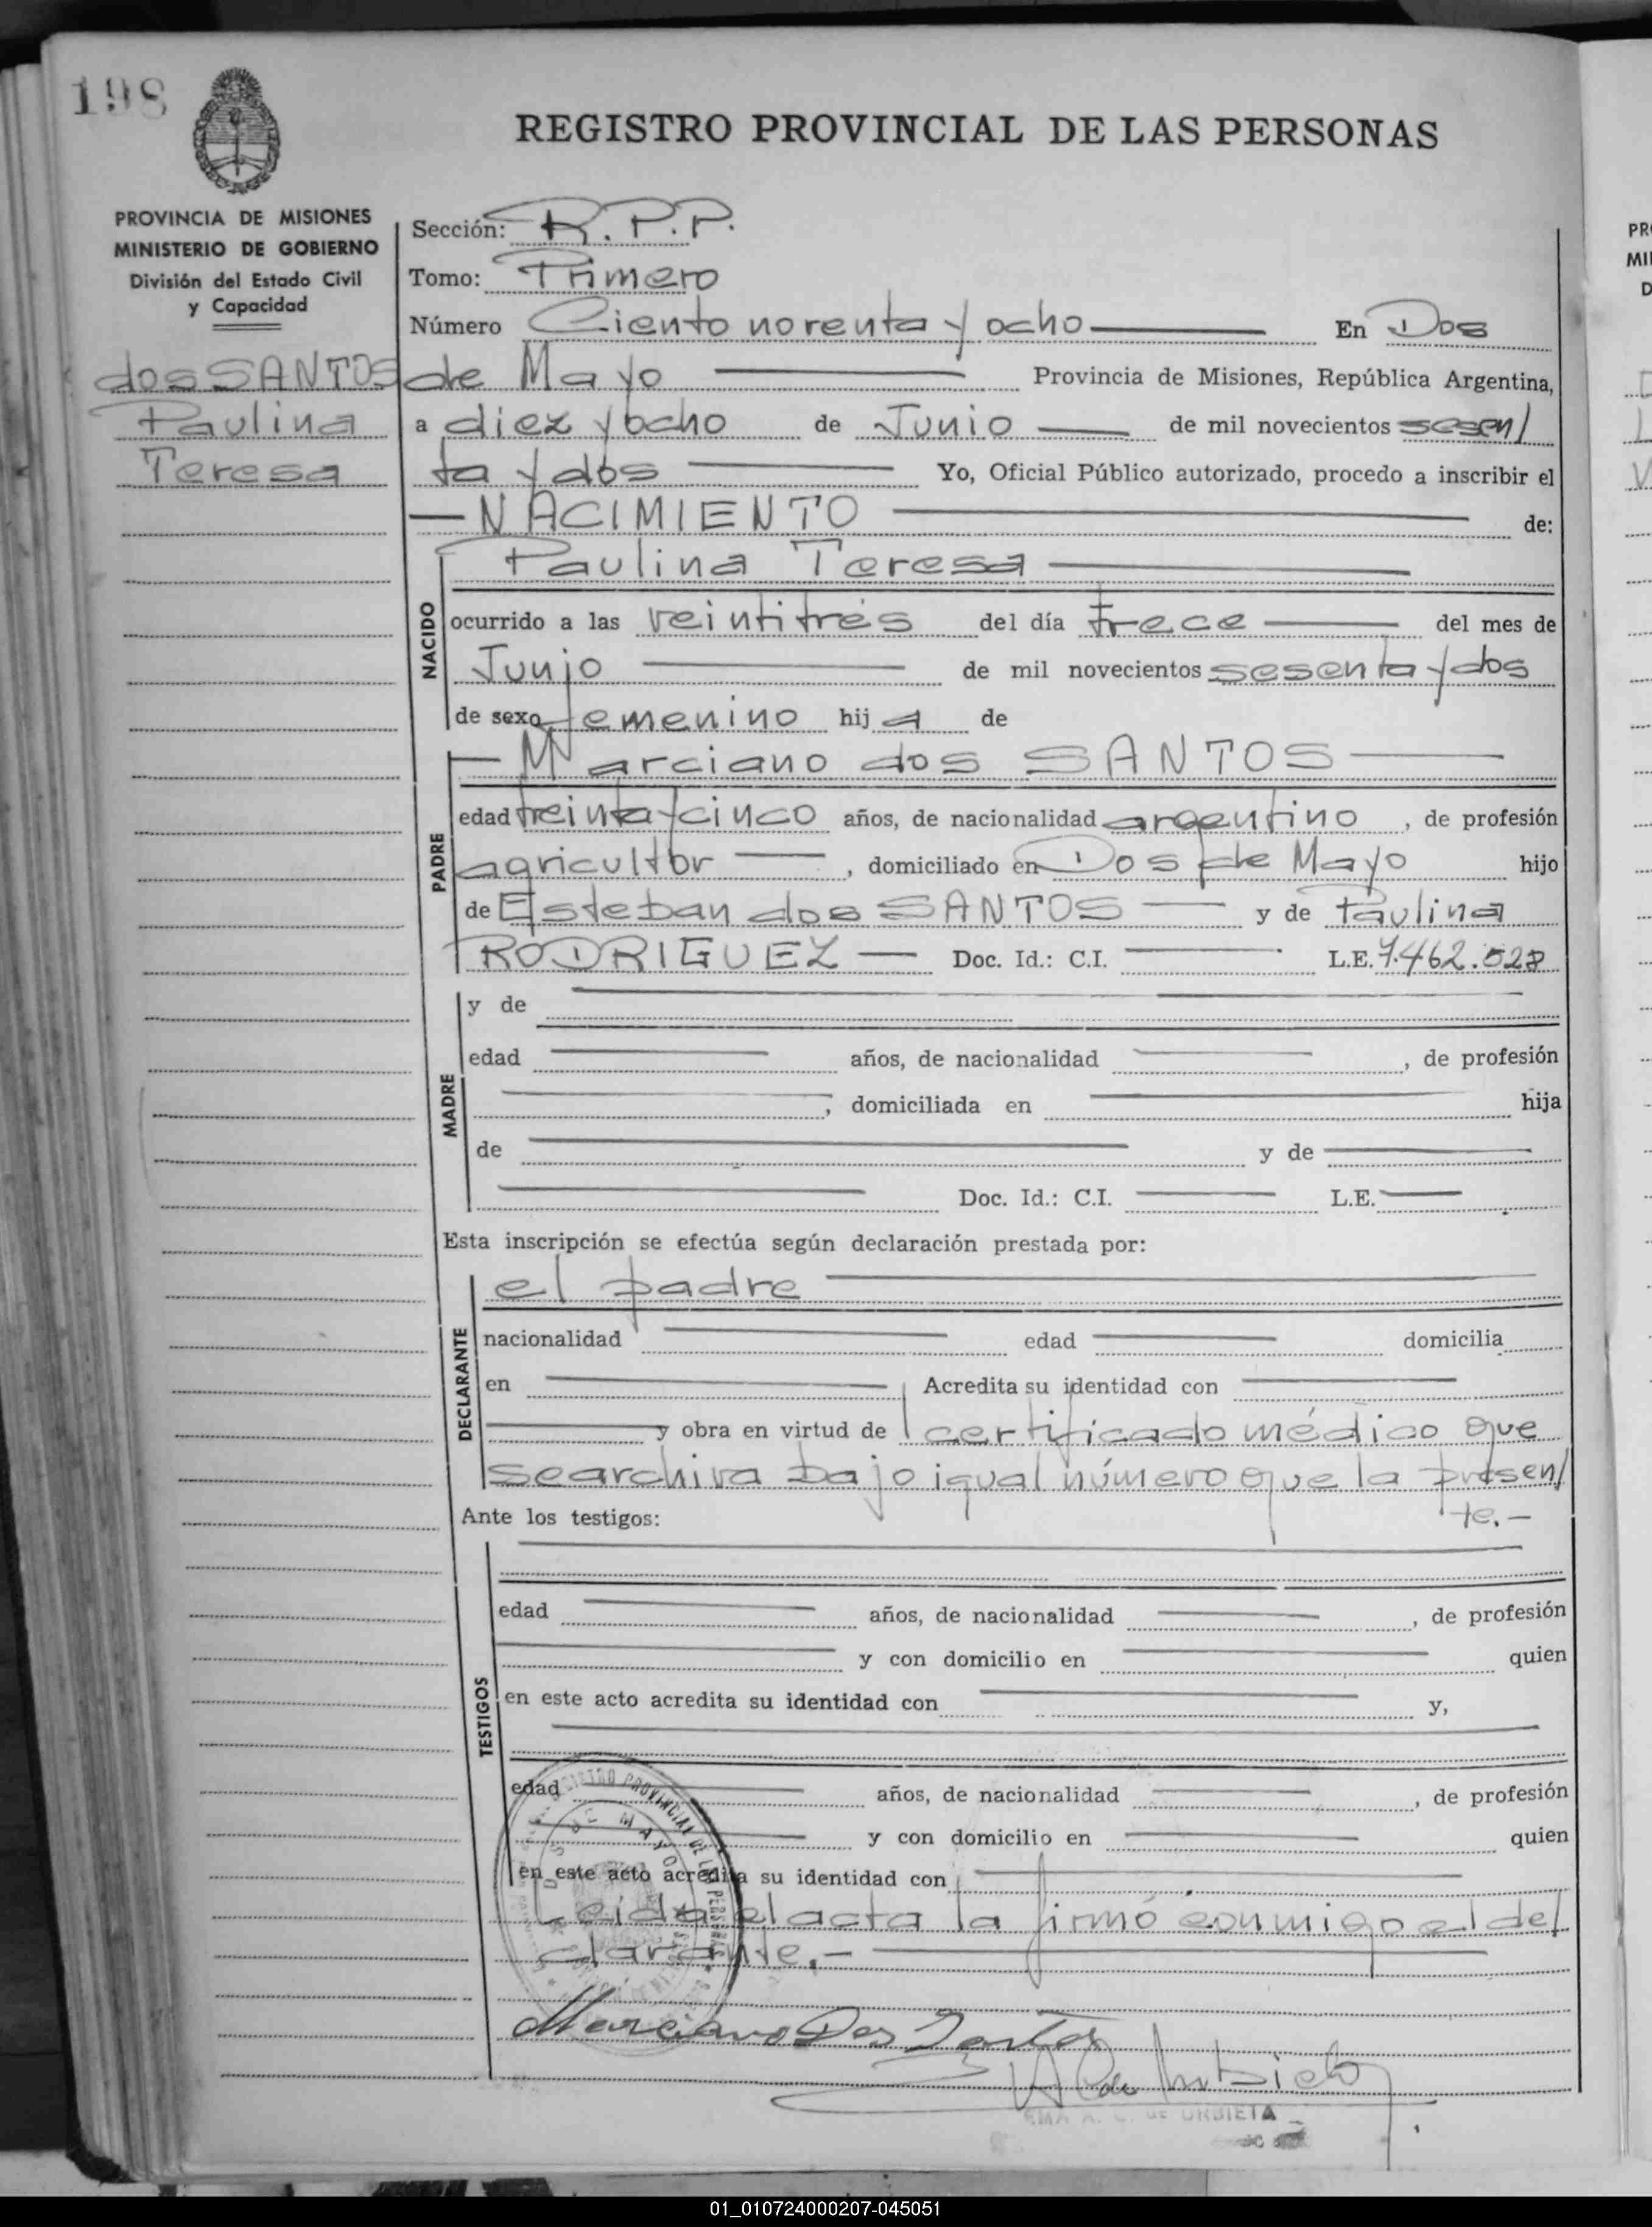 198
REGISTRO PROVINCIAL DE LAS PERSONAS
PROVINCIA DE MISIONES
MINISTERIO DE GOBIERNO
División del Estado Civil
y Capacidad
dos SANTOS
Paulina
Teresa
Sección: R.P.P.
Tomo: Primero
Número Ciento noventa y ocho En Dos
de Mayo Provincia de Misiones, República Argentina,
a diez y ocho de Junio de mil novecientos sesen/
ta y dos Yo, Oficial Público autorizado, procedo a inscribir el
NACIMIENTO de:
NACIDO
Paulina Teresa
ocurrido a las veintitrés del día trece del mes de
Junio de mil novecientos sesenta y dos
de sexo femenino hija de
PADRE
Marciano dos SANTOS
edad treinta y cinco años, de nacionalidad argentino, de profesión
agricultor, domiciliado en Dos de Mayo hijo
de Esteban dos SANTOS y de Paulina
RODRIGUEZ Doc. Id.: C.I. L.E. 7.462.528
MADRE
y de
edad años, de nacionalidad , de profesión
, domiciliada en hija
de y de
Doc. Id.: C.I. L.E.
Esta inscripción se efectúa según declaración prestada por:
DECLARANTE
el padre
nacionalidad edad domicilia
en Acredita su identidad con
y obra en virtud de certificado médico que
se archiva bajo igual número que la presen/
te.-
Ante los testigos:
TESTIGOS
edad años, de nacionalidad , de profesión
y con domicilio en quien
en este acto acredita su identidad con y,
edad años, de nacionalidad , de profesión
y con domicilio en quien
en este acto acredita su identidad con
Leida el acta la firmó conmigo el de/
clarante.-
Marciano Dos Santos
EMA A. C. de URBIETA
01_010724000207-045051